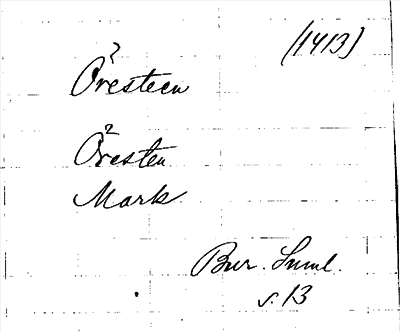 (1413)
Öresteen
Öresten
Mark
Bur. Saml.
s. 13